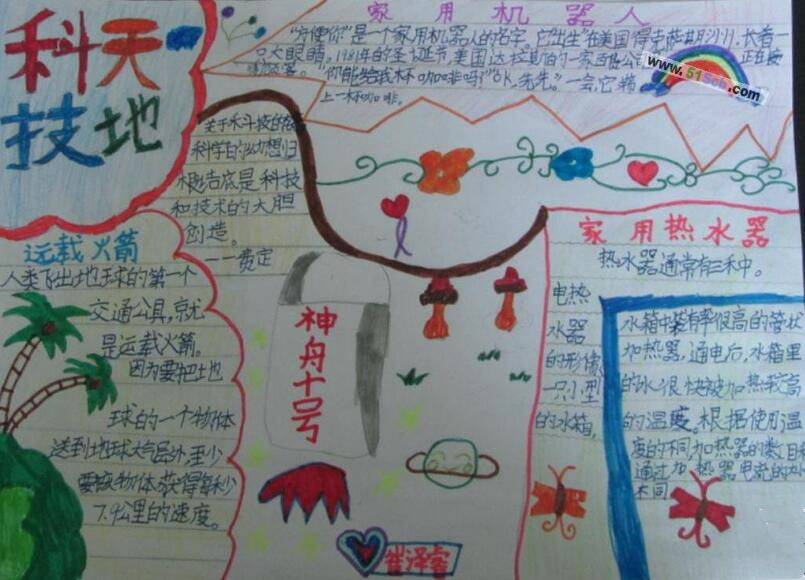 科天
技地
家用机器人
"方便你"是一个家用机器人的名字,它"出生"在美国得克萨斯沙川,长着一
只大眼睛。1981年的圣诞节,美国达拉斯的一家百货公
正在接
"你能给我杯咖啡吗?""OK,先生。"一会,它端
上一杯咖啡。
www.51Scb.com
关于科技的
科学的幻想归
根结底是科技
和技术的大胆
创造。
——费定
远载火箭
人类飞出地球的第一个
交通公具,就
是运载火箭。
因为要把地
球的一个物体
送到地球大气层外,至少
要使物体获得每秒
7.9公里的速度。
神舟十号
崔泽睿
家用热水器
热水器通常有三种。
电热
水器
的形像
一只小型
的水箱,
水箱中装有率很高的管状
加热器,通电后,水箱里
的水很快被加热较高
的温度。根据使用温
度的不同,加热器的数目
通过加热器电流的
不同